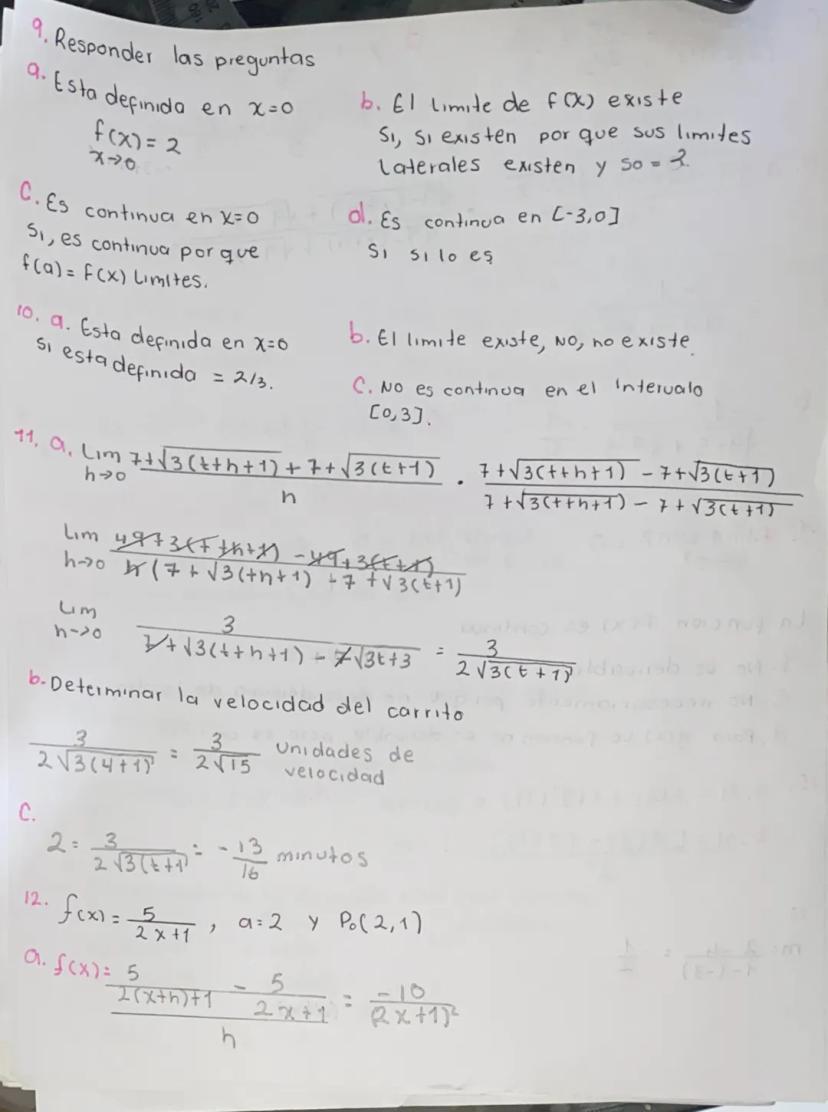 9. Responder las preguntas
a. Esta definida en x=0
f(x) = 2
x→0
b. El limite de f(x) existe
Si, si existen por que sus limites
laterales existen y so =
C. Es continua en x=0
Si, es continua por que
f(a) = f(x) limites.
d. Es continua en [-3,0]
Si si lo es
10. a. Esta definida en x=0
Si esta definida = 2/3.
b. El limite existe, No, no existe.
C. No es continua en el intervalo
[0,3].
11. a. Lim 7+√3(t+h+1) + 7+√3(t+1) / h · 7+√3(t+h+1) - 7+√3(t+1) / 7+√3(t+h+1) - 7+√3(t+1)
h→0
Lim 49+3(t+h+1) - 49+3(t+1) / h(7+√3(+h+1) +7+√3(t+1)
h→0
Lim 3 / 7+√3(t+h+1) - 7√3t+3 = 3 / 2√3(t+1)
h→0
b. Determinar la velocidad del carrito
3 / 2√3(4+1) = 3 / 2√15 unidades de
velocidad
C.
2 = 3 / 2√3(t+1 = -13/16 minutos
12. f(x) = 5 / 2x+1 , a=2 y P₀(2,1)
a. f(x) = 5 / 2(x+h)+1 - 5 / 2x+1 / h = -10 / (2x+1)²